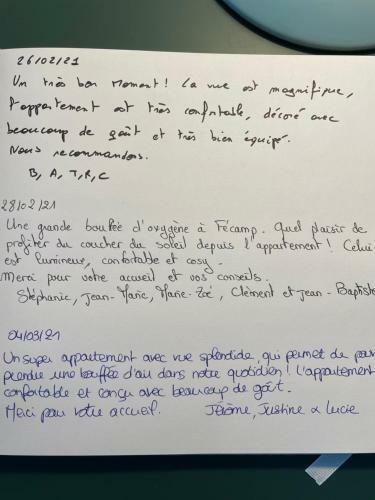 26/02/21
Un très bon moment! La vue est magnifique,
l'appartement est très confortable, décoré avec
beaucoup de goût et très bien équipé.
Nous recommandons.
B, A, T, R, C
28/02/21
Une grande bouffée d'oxygène à Fécamp. Quel plaisir de
profiter du coucher du soleil depuis l'appartement! Celui
est lumineux, confortable et cosy.
Merci pour votre accueil et vos conseils.
Stéphanie, Jean-Marie, Marie-Zoé, Clément et Jean-Baptiste
04/03/21
Un super appartement avec vue splendide, qui permet de
prendre une bouffée d'air dans notre quotidien! L'appartement
confortable et conçu avec beaucoup de goût.
Merci pour votre accueil. Jérôme, Justine & Lucie